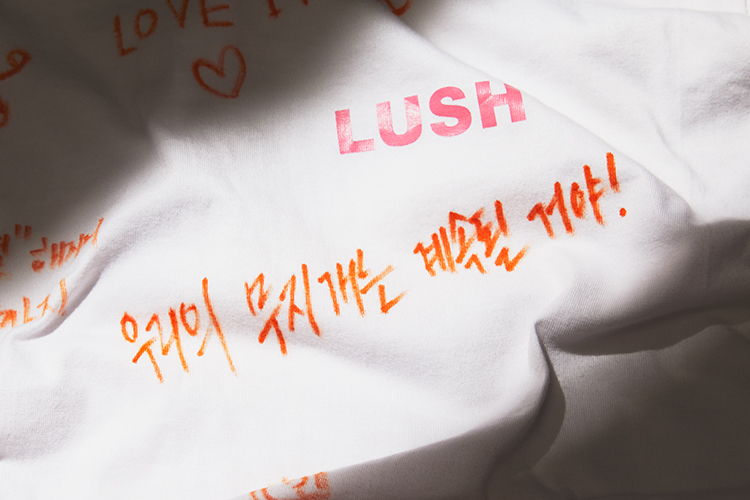 LOVE
LUSH
우리의 무지개는 계속될 거야!